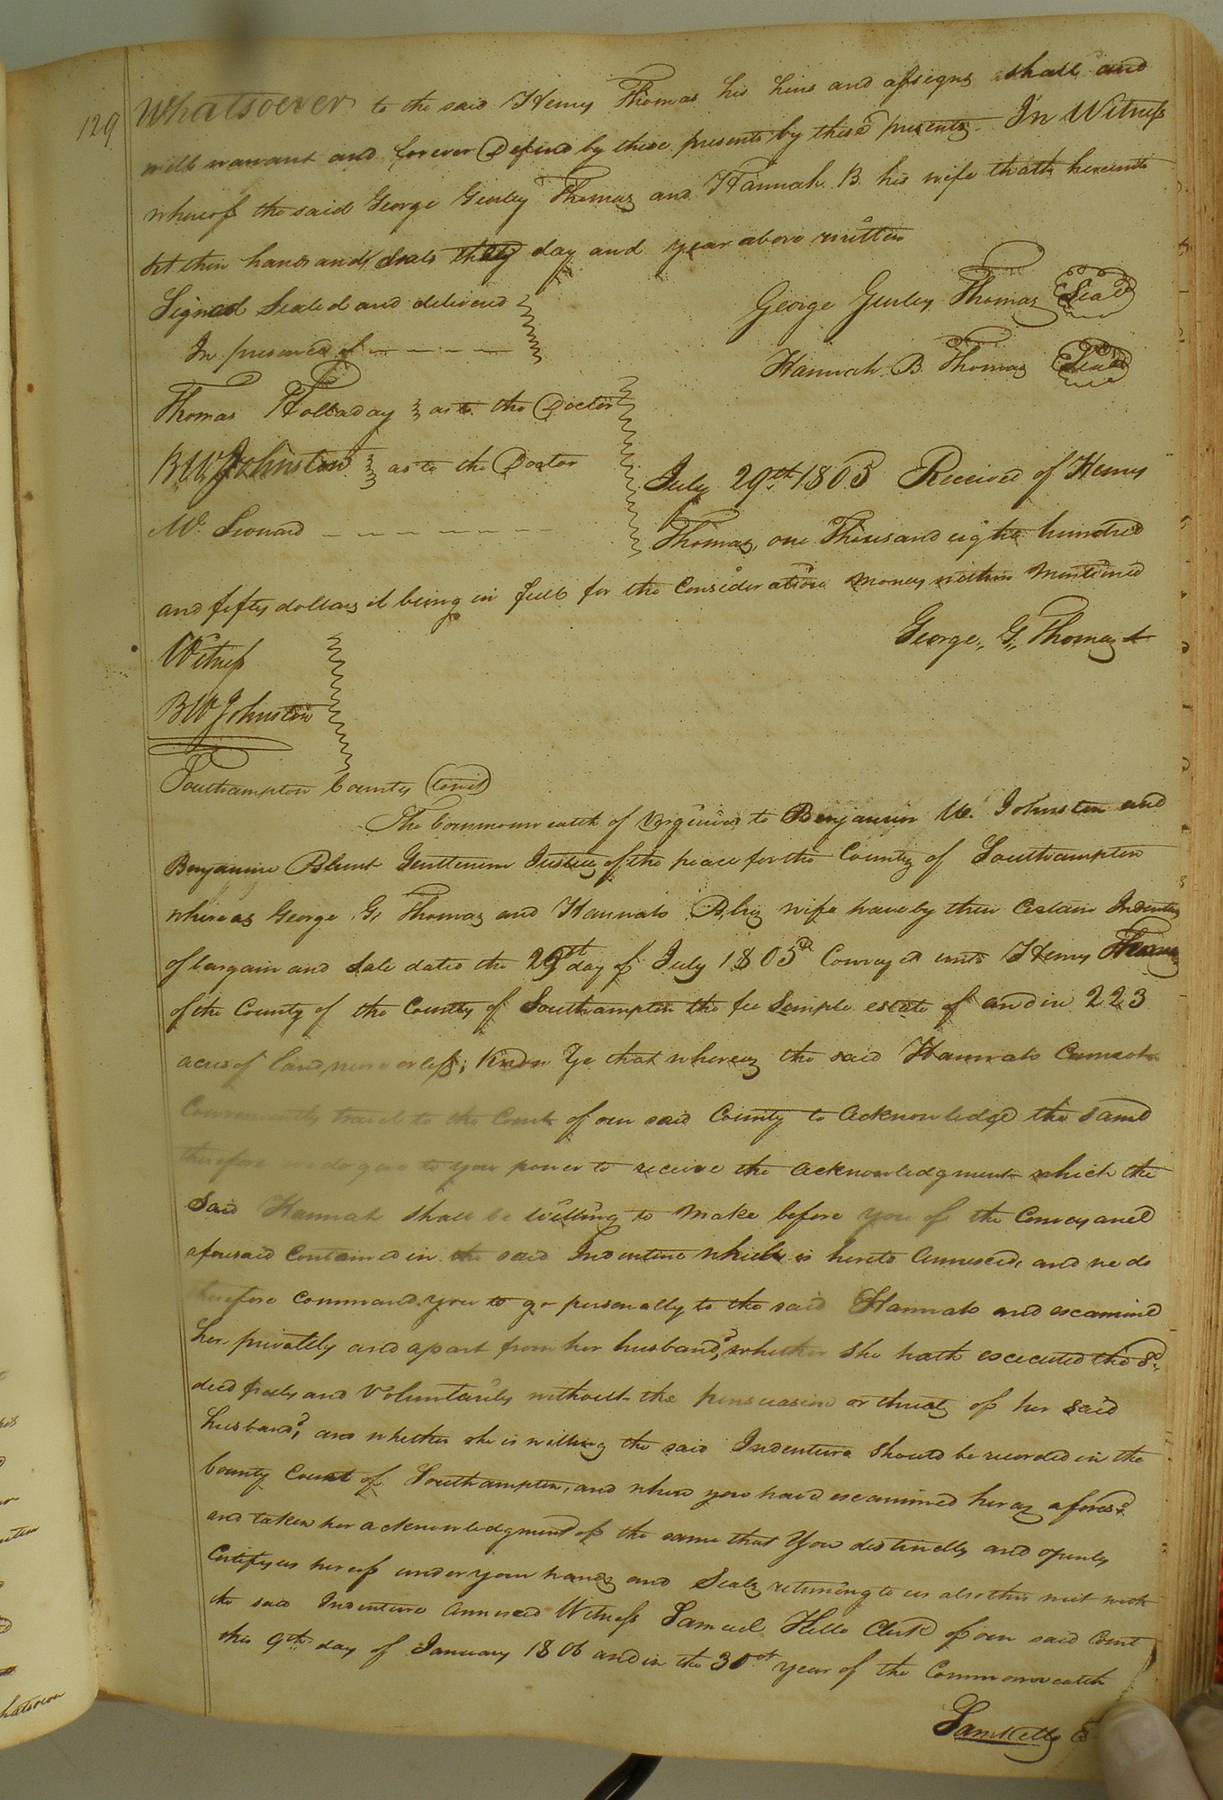 129 Whatsoever to the said Henry Thomas his heirs and assigns shall and
will warrant and forever Defend by these presents by these presents. In Witness
whereof the said George Gurley Thomas and Hannah B. his wife thath hereunto
set their hands and Seals they day and year above written
Signed Sealed and delivered
In presence of
George Gurley Thomas Seal
Hannah B. Thomas Seal
Thomas Holladay as to the Doctor
BW Johnston as to the Doctor
W. Leonard
July 29th 1805 Received of Henry
Thomas, one Thousand eight hundred
and fifty dollars it being in full for the Consideration money within Mentioned
George, G, Thomas
Witness
BW Johnston
Southampton County (towit)
The Commonwealth of Virginia to Benjamin W. Johnston and
Benjamine Blunt Gentlemen Justices of the peace for the County of Southampton
whereas George G. Thomas and Hannah B. his wife have by their Certain Indenture
of bargain and Sale dated the 29th day of July 1805 Conveyed unto Henry Thomas
of the County of the County of Southampton the fee Simple estate of and in 223
acres of land, more or less; Know Ye that whereas the said Hannah Cannot
Conveniently travel to the Court of our said County to Acknowledge the same
therefore we do give to your power to receive the Acknowledgment which the
Said Hannah Shall be willing to make before you of the Conveyance
aforesaid Contained in the said Indenture which is hereto Annexed, and we do
therefore command you to go personally to the said Hannah and examine
her privately and apart from her husband, whether She hath executed the sd.
deed freely and Voluntarily without the persuasion or threats of her said
husband, and whether she is willing the said Indenture Should be recorded in the
County Court of Southampton, and when you have examined her as aforesd.
and taken her acknowledgment of the same that You distinctly and openly
Certify us hereof under your hands and Seals returning to us also this writ with
the said Indenture annexed Witness Samuel Kello Clerk of our said Court
this 9th day of January 1806 and in the 30th year of the Commonwealth
Sam Kello